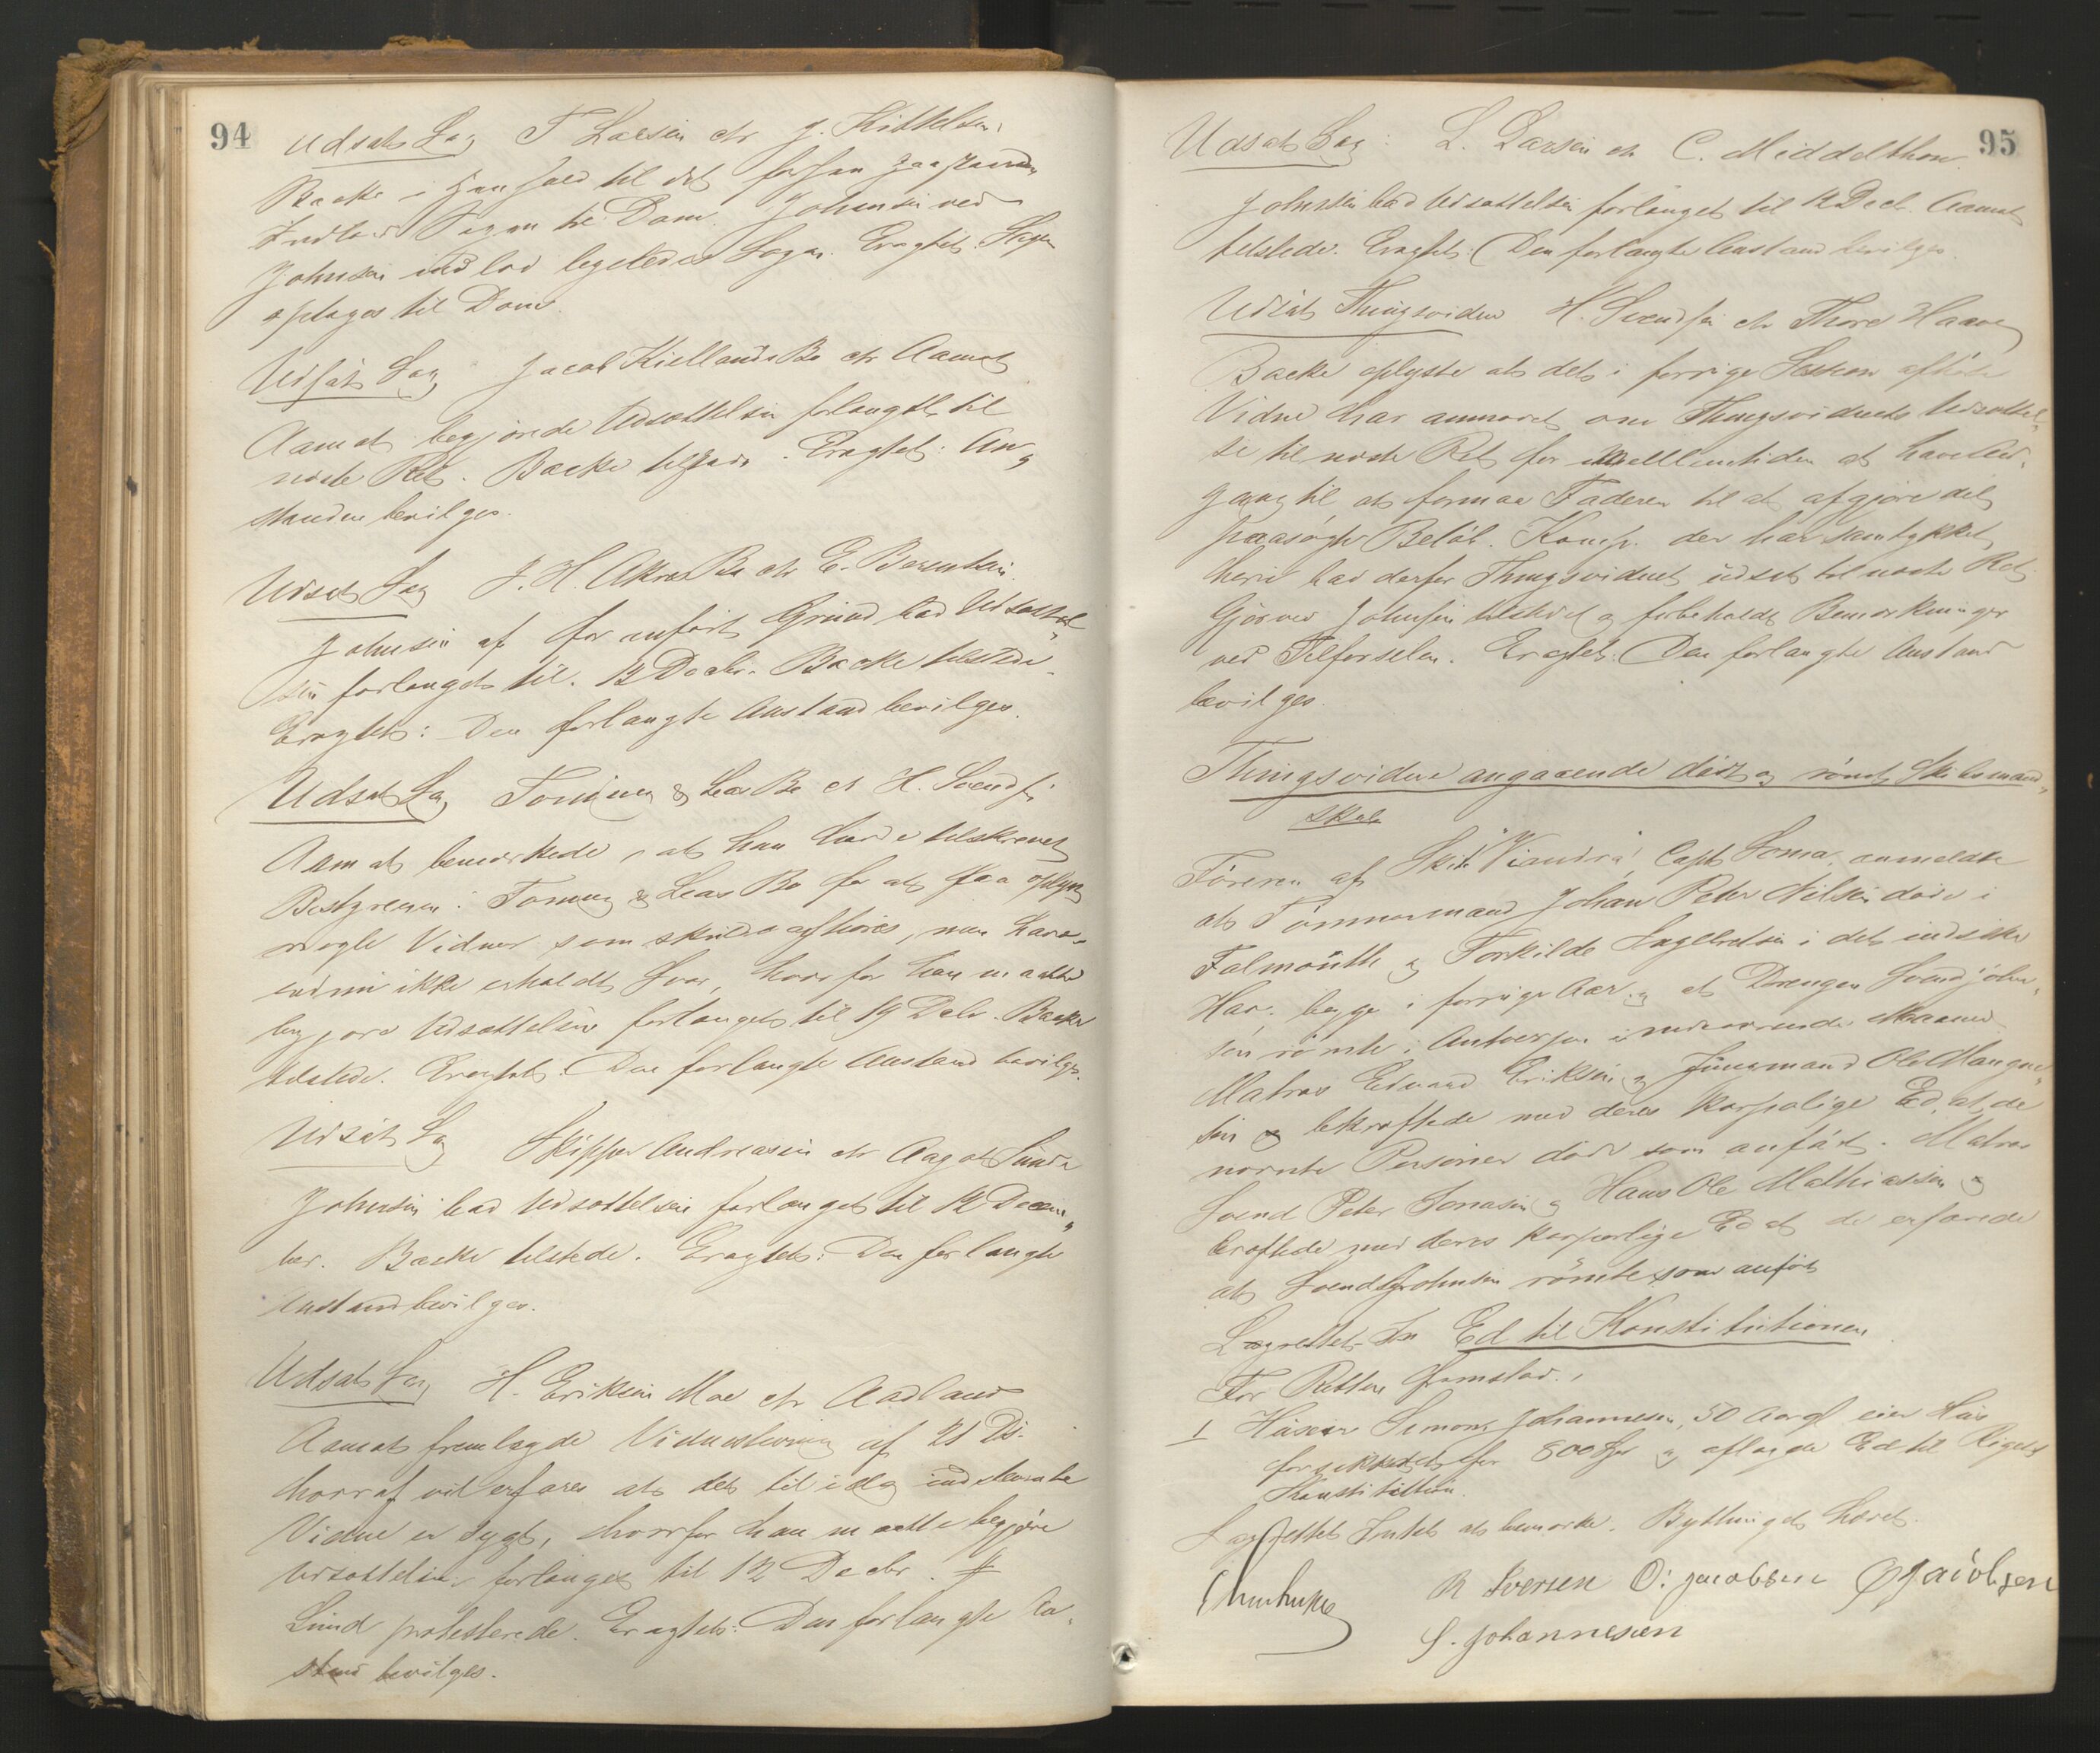 94
Udsat Sag T Larsen ctr J. Kittelsen.
Backe i Henhold til det forhen paastaaede
Indlod Sagen til Dom. Johnsen ved
Johnsen indlod ligeledes Sagen. Eragtet: Sagen
optages til Dom.
Udsat Sag Jacob Kiellands Bo ctr Aamot
Aamot begjærede Udsættelsen forlænget til
næste Ret. Backe tilstede. Eragtet: An-
standen bevilges.
Udsat Sag J. H. Akres Bo ctr E. Berentsen.
Johnsen af før anført Grund bad Udsættel-
sen forlænget til 12 Decbr. Backe tilstede.
Eragtet: Den forlangte Anstand bevilges.
Udsat Sag Tønning & Leas Bo ctr H. Svendsen
Aamot bemærkede, at han havde tilskrevet
Bestyreren i Tønning & Leas Bo for at faa opgivet
nogle Vidner som skulde afhøres, men havde
endnu ikke erholdt Svar, hvorfor han maatte
begjære Udsættelsen forlænget til 19 Decbr. Backe
tilstede. Eragtet: Den forlangte Anstand bevilges.
Udsat Sag Skipper Andreasen ctr Aagot Sunde
Johnsen bad Udsættelsen forlænget til 12 Decem-
ber. Backe tilstede. Eragtet: Den forlangte
Anstand bevilges.
Udsat Sag H. Eriksen Moe ctr Aadland
Aamot fremlagde Vidnestevning af 21 Ds.
hvoraf vil erfares at det til idag indstevnte
Vidne er sygt, hvorfor han maatte begjære
Udsættelsen forlænget til 12 Decbr.
Lund protesterede. Eragtet: Den forlangte An-
stand bevilges.
95
Udsat Sag: L. Larsen ctr C. Middelthon
Johnsen bad Udsættelsen forlænget til 12 Decb. Aamot
tilstede. Eragtet: Den forlangte Anstand bevilges.
Udsat Thingsvidne H. Svendsen ctr Thore Haave
Backe oplyste at det i forrige Session afhørte
Vidne har anmodet om Thingsvidnets Udsættel-
se til næste Ret for imellemtiden at have Ad-
gang til at formaa Faderen til at afgjøre det
paasøgte Beløb. Komp. der har samtykket
heri bad derfor Thingsvidnet udsat til næste Ret
Gjør ved Johnsen tilstede og forbeholdt Bemærkninger
ved Tilførselen. Eragtet: Den forlangte Anstand
bevilges.
Thingsvidne angaaende død og rømt Skibsmand-
skab
Føreren af Skib "Viandra", Capt Soma, anmeldte
at Tømmermand Johan Peter Nilsen døde i
Falmouth og Torkilde Ingebretsen i det indiske
Hav, begge i forrige Aar, og at Drengen Svend John-
sen rømte i Antverpen i nærværende Maaned
Matros Edvard Eriksen og Jungmand Ole Mangne-
sen bekræftede med deres korporlige Ed, at de
nævnte Personer døde som anført. Matros
Svend Peter Jonasen og Hans Ole Mathiassen
bekræftede med deres korporlige Ed at de erfarede
at Svend Johnsen rømte som anført
Lagrettet In Ed til Konstitutionen
For Retten fremstod:
1 Huseier Simon Johannesen, 50 Aar gl eier Hus
forsikkret for 800 Spd og aflagde Ed til Rigets
Konstitution.
Lagrettet Intet at bemærke. Rettning at hævet.
R Iversen O: Jacobsen O Jacobsen
S. Johannesen